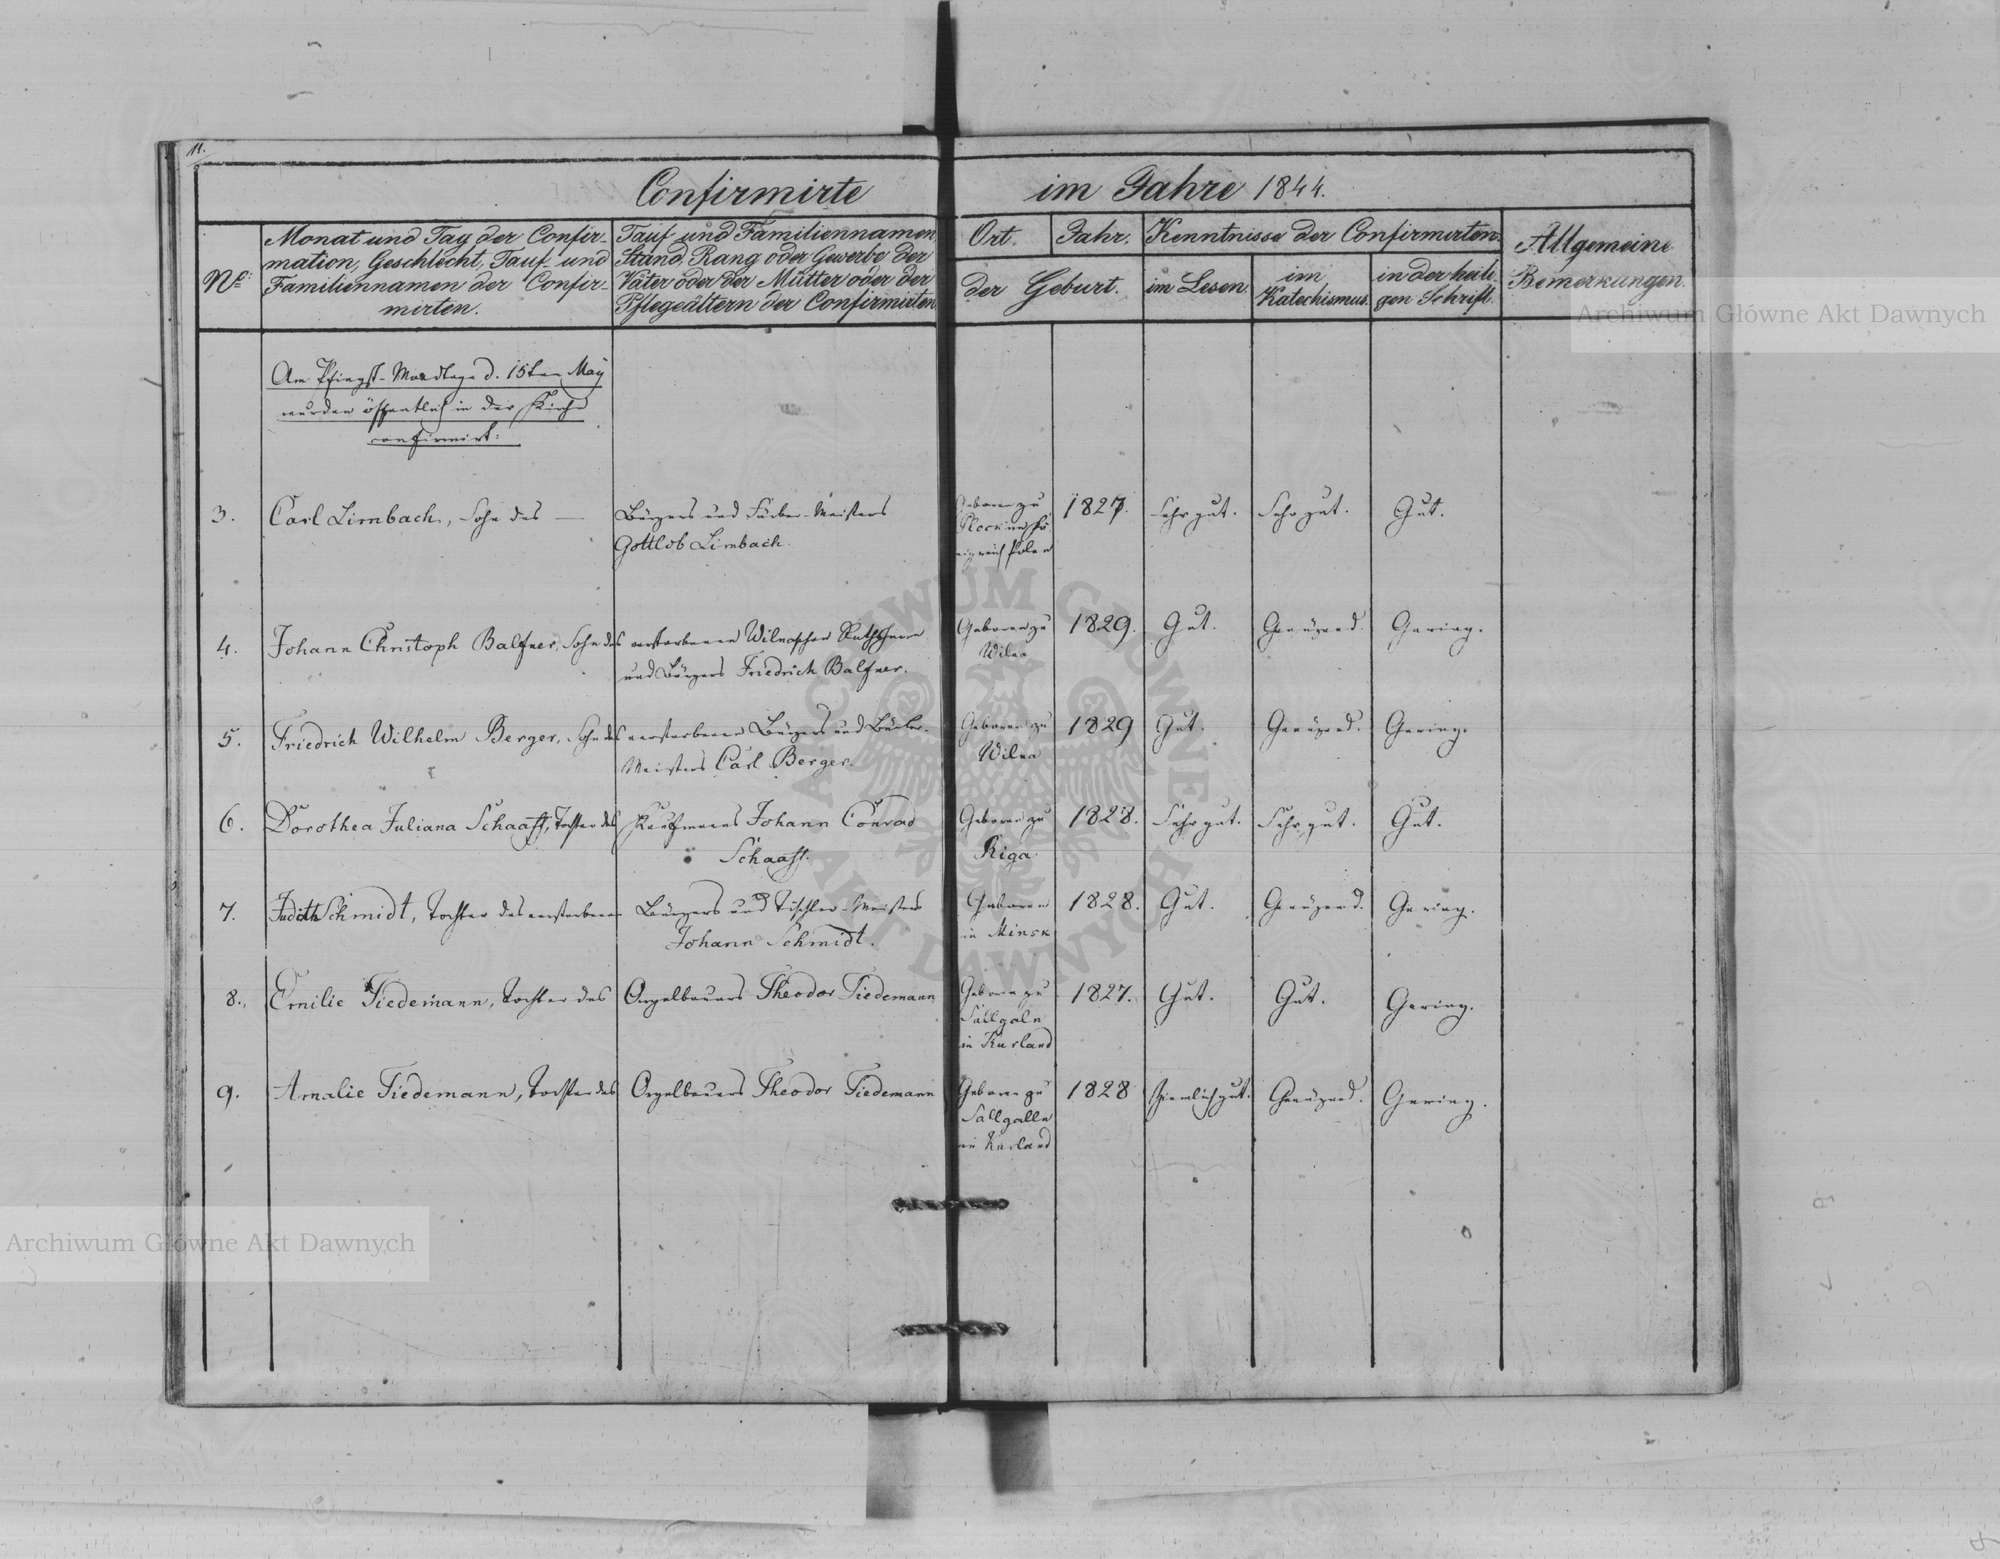 11.
Confirmirte im Jahre 1844.
No:
Monat und Tag der Confir-
mation, Geschlecht, Tauf und
Familiennamen der Confir-
mirten.
Tauf und Familiennamen,
Stand, Rang oder Gewerbe der
Väter oder der Mütter oder der
Pflegeältern der Confirmirten
Ort. Jahr.
der Geburt.
Kenntnisse der Confirmirten.
im Lesen.
im
Katechismus.
in der heili-
gen Schrift.
Allgemeine
Bemerkungen.
Am Pfingst-Mondtage d. 15ten May
wurden öffentlich in der Kirche
confirmirt:
3. Carl Limbach, Sohn des — Bürgers und Färber-Meisters
Gottlob Limbach.
Geboren zu
im Kö-
nigreich Polen
1827. Sehr gut. Sehr gut. Gut.
4. Johann Christoph Balfner, Sohn des verstorbenen Wilnaschen Rathsherrn
und Bürgers Friedrich Balfner.
Geboren zu
Wilna
1829. Gut. Genügend. Gering.
5. Friedrich Wilhelm Berger, Sohn des verstorbenen Bürgers und
Meisters Carl Berger.
Geboren zu
Wilna
1829 Gut. Genügend. Gering.
6. Dorothea Juliana Schaaff, Tochter des Kaufmanns Johann Conrad
Schaaff.
Geboren zu
Riga.
1828. Sehr gut. Sehr gut. Gut.
7. Judith Schmidt, Tochter des verstorbenen Bürgers und Tischler-Meisters
Johann Schmidt.
Geboren
in Minsk
1828. Gut. Genügend. Gering.
8. Emilie Tiedemann, Tochter des Orgelbauers Theodor Tiedemann
Geboren zu
Sallgaln
in Kurland
1827. Gut. Gut. Gering.
9. Amalie Tiedemann, Tochter des Orgelbauers Theodor Tiedemann
Geboren zu
Sallgalln
in Kurland
1828 Ziemlich gut. Genügend. Gering.
Archiwum Główne Akt Dawnych
Archiwum Główne Akt Dawnych
ARCHIWUM GŁÓWNE AKT DAWNYCH